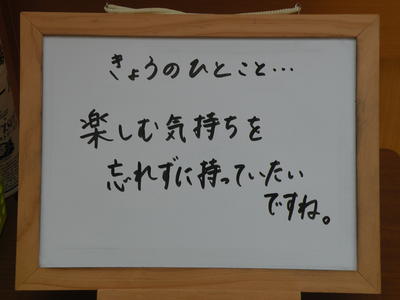 きょうのひとこと…
楽しむ気持ちを
忘れずに持っていたい
ですね。